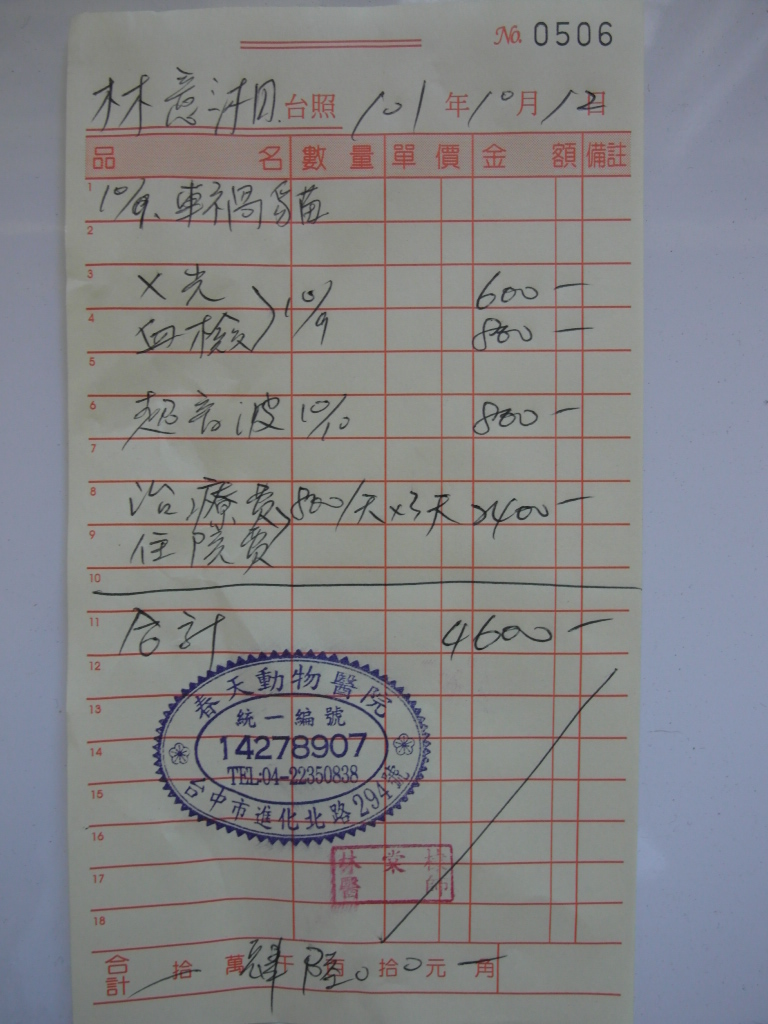 No. 0506
林意湘 台照 101年10月12日
品名 數量 單價 金額 備註
1 10/9、車禍貓
2
3 X光 10/9 600-
4 血檢 800-
5
6 超音波 10/10 800-
7
8 治療費 800/天×3天 2400-
9 住院費
10
11 合計 4600-
12
春天動物醫院
統一編號
13
14278907
14
TEL:04-22350838
台中市進化北路294號
15
16
林棠樺
17
醫師
18
合計 拾萬肆千陸百0拾0元-角